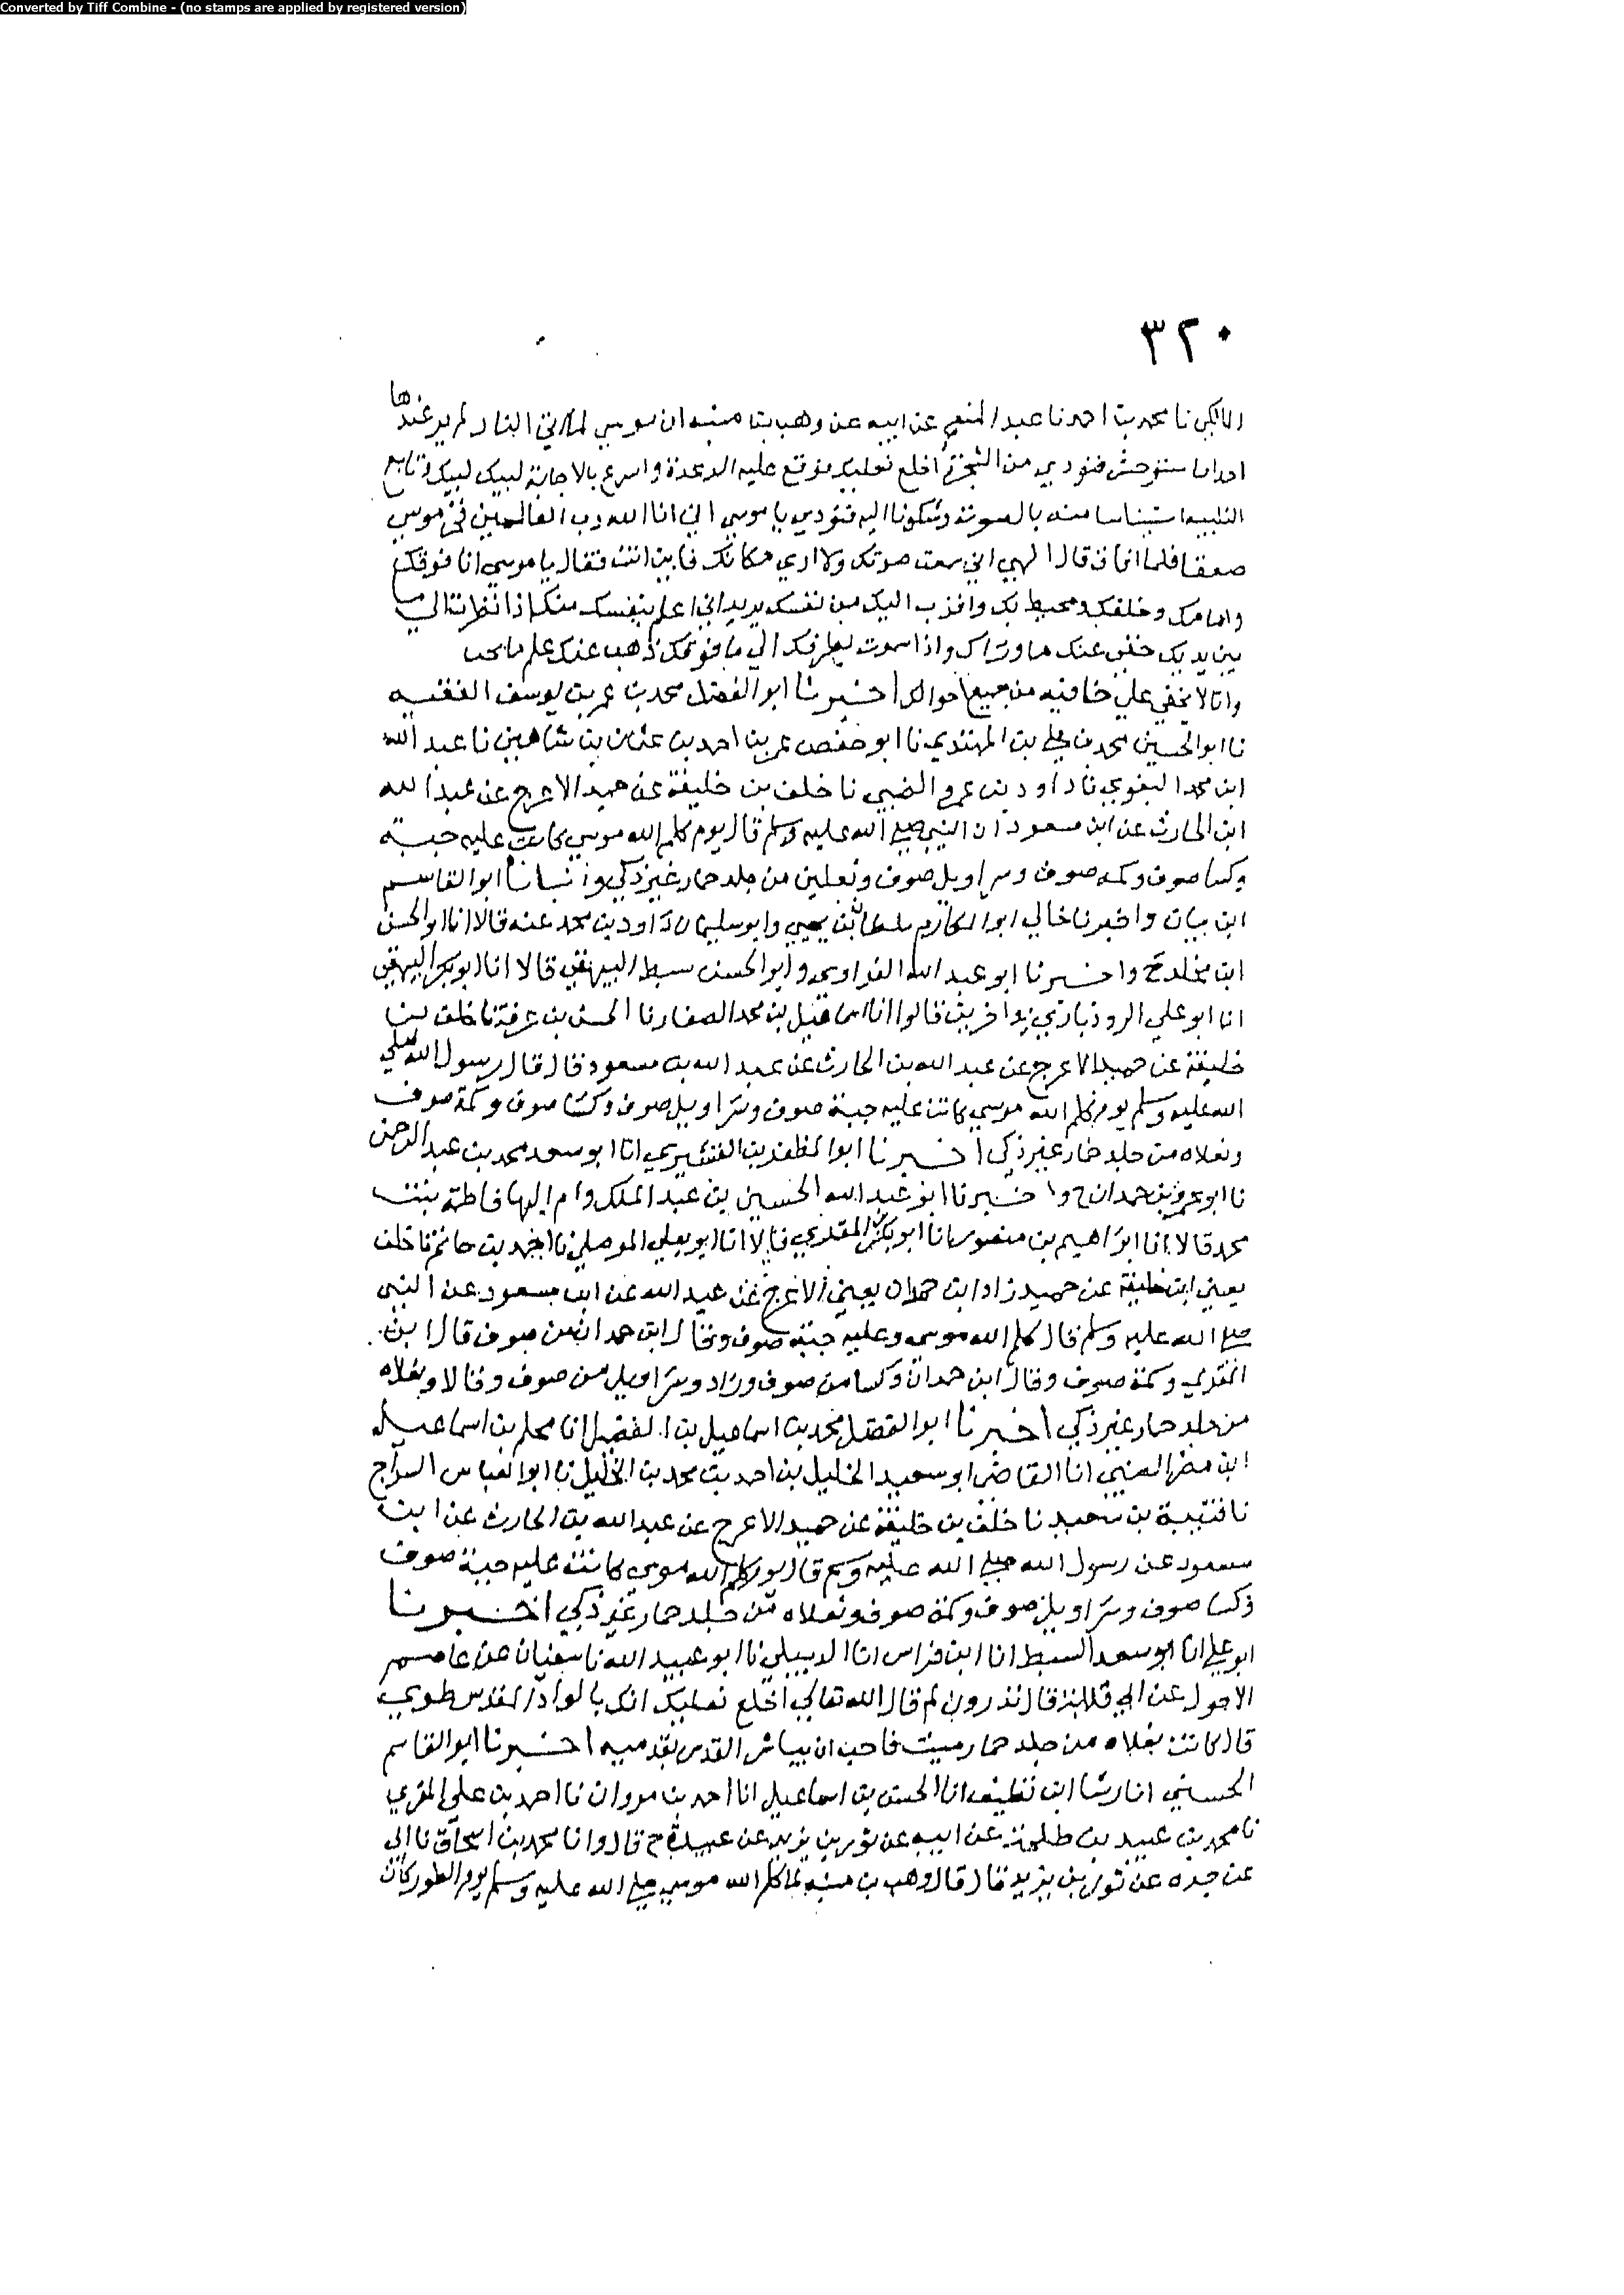 Converted by Tiff Combine - (no stamps are applied by registered version)
٣٢٠
المالكي نا محمد بن احمد نا عبد المنعم عن ابيه عن وهب بن منبه ان موسي لما اتي النار لم ير عندها
احدا استوحش فنودي من الشجرة اخلع نعليك فوقع عليه الرعدة واسرع بالاجابة لبيك لبيك وتابع
التلبية استيناسا منه بالصوت وسكونا اليه فنودي يا موسي اني انا الله رب العالمين فخر موسي
صعقا فلما افاق قال الهي اني سمعت صوتك ولا اري مكانك فاين انت فقال يا موسي انا فوقك
وامامك وخلفك ومحيط بك واقرب اليك من نفسك يريد اني اعلم بنفسك منك اذا نظرت الي ما
بين يديك خفي عنك ما وراك واذا سموت بطرفك الي ما فوقك ذهب عنك علم ما تحت
وانا لا تخفي علي خافيه من جميع احوالك اخبرنا ابو الفضل محمد بن عمر بن يوسف الفقيه
نا ابو الحسين محمد بن علي بن المهتدي نا ابو حفص عمر بن احمد بن عثمان بن شاهين نا عبد الله
ابن محمد البغوي نا داود بن عمرو الضبي نا خلف بن خليفة عن حميد الاعرج عن عبد الله
ابن الحارث عن ابن مسعود ان النبي صلي الله عليه وسلم قال يوم كلم الله موسي كانت عليه جبة
وكسا صوف وكمه صوف وسراويل صوف ونعلين من جلد حمار غير ذكي وانبانا ابو القاسم
ابن بيان واخبرنا خالي ابو المكارم سلطان بن يحيي وابو سليمان داود بن محمد عنه قالا انا ابو الحسن
ابن مخلد ح واخبرنا ابو عبد الله الفراوي وابو الحسن سبط البيهقي قالا انا ابو بكر البيهقي
انا ابو علي الروذباري في اخرين قالوا انا اسماعيل بن محمد الصفار نا الحسن بن عرفة نا خلف بن
خليفة عن حميد الاعرج عن عبد الله بن الحارث عن عبد الله بن مسعود قال قال رسول الله صلي
الله عليه وسلم يوم كلم الله موسي كانت عليه جبة صوف وسراويل صوف وكسا صوف وكمة صوف
ونعلاه من جلد حمار غير ذكي اخبرنا ابو المظفر بن القشيري انا ابو سعد محمد بن عبد الرحمن
نا ابو عمرو بن حمدان ح واخبرنا ابو عبد الله الحسين بن عبد الملك وام البها فاطمة بنت
محمد قالا انا ابراهيم بن منصور انا ابو بكر بن المقري قالا انا ابو يعلي الموصلي نا احمد بن حاتم نا خلف
يعني ابن خليفة عن حميد زاد ابن حمدان يعني الاعرج عن عبد الله عن ابن مسعود عن النبي
صلي الله عليه وسلم قال كلم الله موسي وعليه جبة صوف وقال ابن حمدان من صوف قال ابن
المقري وكمة صوف وقال ابن حمدان وكسا من صوف وزاد وسراويل من صوف وقالا ونعلاه
من جلد حمار غير ذكي اخبرنا ابو الفضل محمد بن اسماعيل بن الفضيل انا محلم بن اسماعيل
ابن مضر الضبي انا القاضي ابو سعيد الخليل بن احمد بن محمد بن الخليل نا ابو العباس السراج
نا قتيبة بن سعيد نا خلف بن خليفة عن حميد الاعرج عن عبد الله بن الحارث عن ابن
مسعود عن رسول الله صلي الله عليه وسلم قال يوم كلم الله موسي كانت عليه جبة صوف
وكسا صوف وسراويل صوف وكمة صوف ونعلاه من جلد حمار غير ذكي اخبرنا
ابو علي انا ابو سعد السبط انا ابن فراس انا الديبلي نا ابو عبيد الله نا سفيان عن عاصم
الاحول عن ابي قلابة قال تدرون لم قال الله تعالي اخلع نعليك انك بالواد المقدس طوي
قال كانت نعلاه من جلد حمار ميت فاحب ان يباشر القدس بقدميه اخبرنا ابو القاسم
الحسيني انا رشا ابن نظيف انا الحسن بن اسماعيل انا احمد بن مروان نا احمد بن علي المقري
نا محمد بن عبيد بن طلحة عن ابيه عن ثور بن يزيد عن عبيدة ح قال وانا محمد بن اسحاق نا ابي
عن جده عن ثور بن يزيد قال قال وهب بن منبه لما كلم الله موسي صلي الله عليه وسلم يوم الطور كان